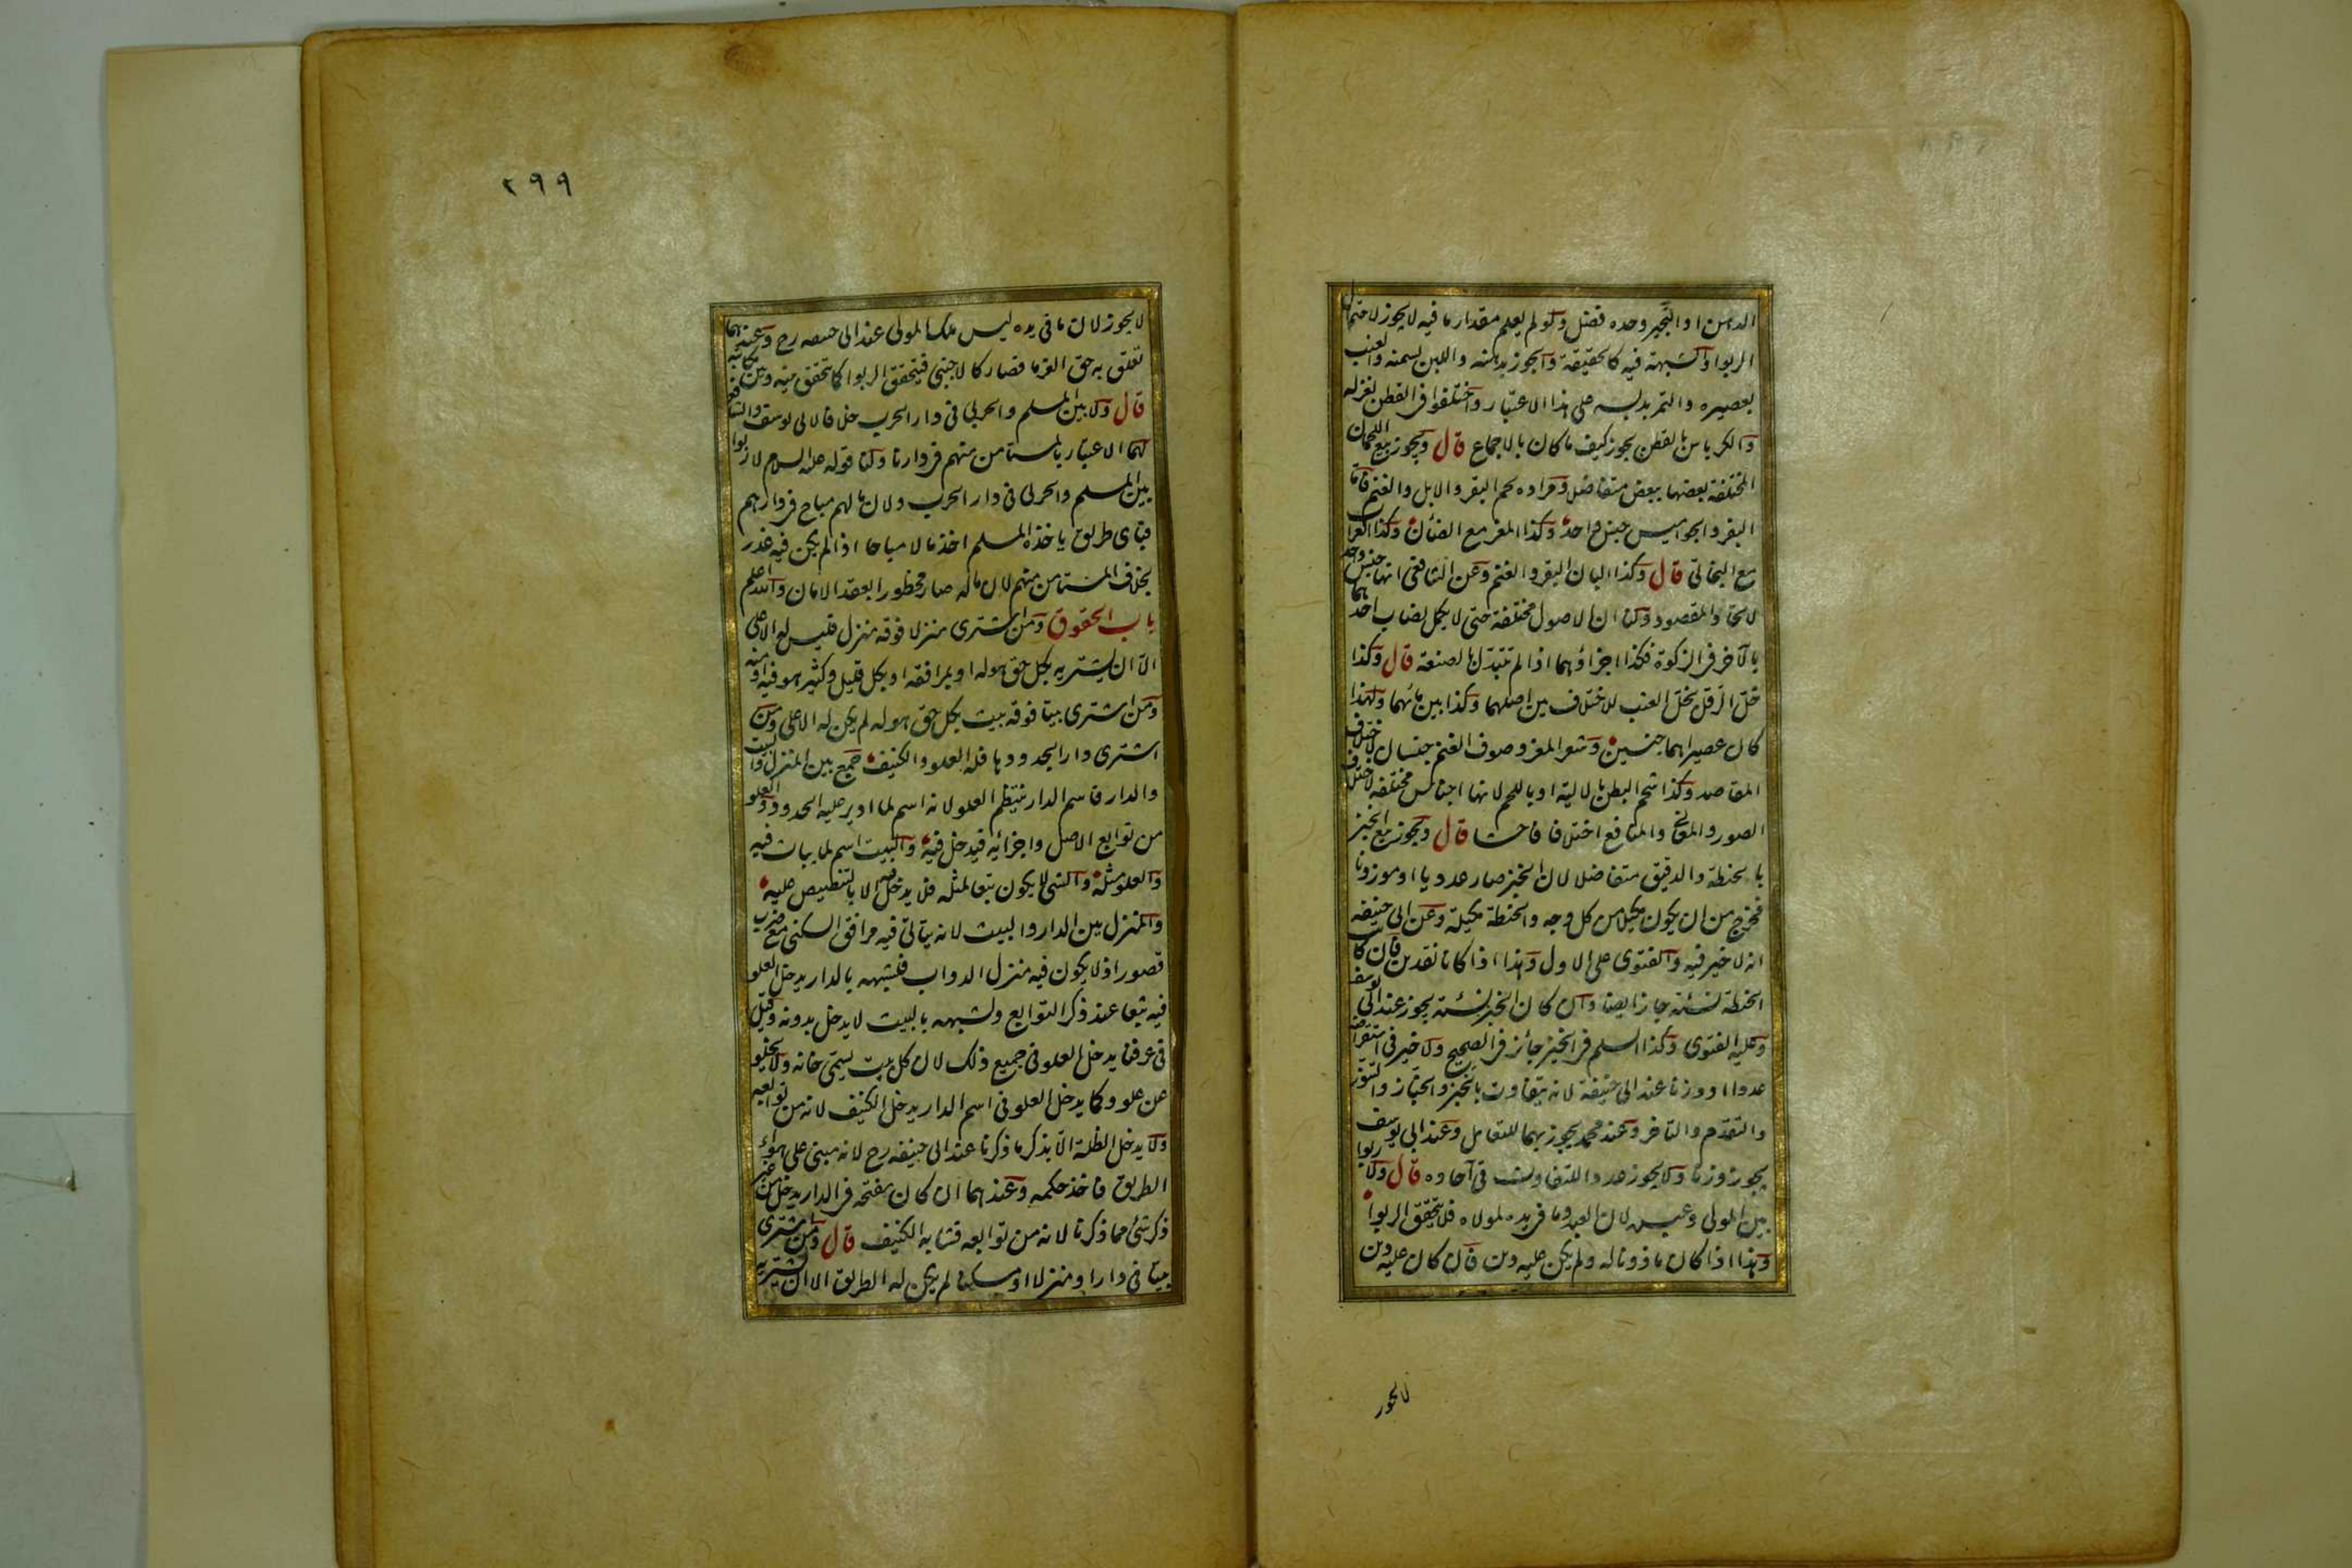 الدهن او الثجير وحده فضل ولو لم يعلم مقدار ما فيه لا يجوز لاحتمال
الربوا والشبهة فيه كالحقيقة والجوز بدهنه واللبن بسمنه والعنب
بعصيره والتمر بدبسه على هذا الاعتبار واختلفوا فى القطن بغزله
والكرباس بالقطن يجوز كيف ما كان بالاجماع قال ويجوز بيع اللحمان
المختلفة بعضها ببعض متفاضلا ومراده لحم البقر والابل والغنم فاما
البقر والجواميس جنس واحد وكذا المعز مع الضأن وكذا العراب
مع البخاتى قال وكذا البان البقر والغنم وعن الشافعى انها جنس واحد
لاتحاد المقصود ولنا ان الاصول مختلفة حتى لا يكمل نصاب احدهما
بالآخر فى الزكوة فكذا اجزاؤهما اذا لم تتبدل بالصنعة قال وكذا
خل الدقل بخل العنب للاختلاف بين اصلهما وكذا بين مائهما ولهذا
كان عصيراهما جنسين وشعر المعز وصوف الغنم جنسان لاختلاف
المقاصد وكذا شحم البطن بالالية او باللحم لانها اجناس مختلفة لاختلاف
الصور والمعانى والمنافع اختلافا فاحشا قال ويجوز بيع الخبز
بالحنطة والدقيق متفاضلا لان الخبز صار عدديا او موزونا
فخرج من ان يكون مكيلا من كل وجه والحنطة مكيلة وعن ابى حنيفة
انه لا خير فيه والفتوى على الاول وهذا اذا كانا نقدين فان كانت
الحنطة نسئة جاز ايضا وان كان الخبز نسئة يجوز عند ابى يوسف
وعليه الفتوى وكذا السلم فى الخبز جائز فى الصحيح ولا خير فى استقراضه
عددا او وزنا عند ابى حنيفة لانه يتفاوت بالخبز والخباز والتنور
والتقدم والتاخر وعند محمد يجوز بهما للتعامل وعند ابى يوسف
يجوز وزنا ولا يجوز عددا للتفاوت فى آحاده قال ولا ربوا
بين المولى وعبده لان العبد وما فى يده لمولاه فلا يتحقق الربوا
وهذا اذا كان ماذونا له ولم يكن عليه دين فان كان عليه دين
لا يجوز
٢٩٩
لا يجوز لان ما فى يده ليس ملك المولى عند ابى حنيفه رح وعندهما
تعلق به حق الغرما فصار كالاجنبى فيتحقق الربوا كما يتحقق بينه وبين مكاتبه
قال ولا بين المسلم والحربى فى دار الحرب خلافا لابى يوسف والشافعى
لهما الاعتبار بالمستامن منهم فى دارنا ولنا قوله عليه السلام لا ربوا
بين المسلم والحربى فى دار الحرب ولان مالهم مباح فى دارهم
فباى طريق ياخذه المسلم اخذ مالا مباحا اذا لم يكن فيه غدر
بخلاف المستامن منهم لان ماله صار محظورا بعقد الامان والله اعلم
باب الحقوق ومن اشترى منزلا فوقه منزل فليس له الاعلى
الا ان يشتريه بكل حق هو له او بمرافقه او بكل قليل وكثير هو فيه او منه
ومن اشترى بيتا فوقه بيت بكل حق هو له لم يكن له الاعلى ومن
اشترى دارا بحدودها فله العلو والكنيف جمع بين المنزل والبيت
والدار فاسم الدار ينتظم العلو لانه اسم لما ادير عليه الحدود والعلو
من توابع الاصل واجزائه فيدخل فيه والبيت اسم لما يبات فيه
والعلو مثله والشئ لا يكون تبعا لمثله فلا يدخل فيه الا بالتنصيص عليه
والمنزل بين الدار والبيت لانه يتاتى فيه مرافق السكنى مع ضرب
قصور اذ لا يكون فيه منزل الدواب فلشبهه بالدار يدخل العلو
فيه تبعا عند ذكر التوابع ولشبهه بالبيت لا يدخل بدونه وقيل
فى عرفنا يدخل العلو فى جميع ذلك لان كل بيت يسمى خانه ولا يخلو
عن علو وكما يدخل العلو فى اسم الدار يدخل الكنيف لانه من توابعه
ولا يدخل الظلة الا بذكر ما ذكرنا عند ابى حنيفه رح لانه مبنى على هواء
الطريق فاخذ حكمه وعندهما ان كان مفتحه فى الدار يدخل من غير
ذكر شئ مما ذكرنا لانه من توابعه فشابه الكنيف قال ومن اشترى
بيتا فى دار او منزلا او مسكنا لم يكن له الطريق الا ان يشتريه